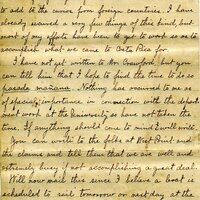 to add to the curios from foreign countries. I have
already secured a very few things of this kind, but
most of my efforts have been to get to work so as to
accomplish what we came to Costa Rica for.
I have not yet written to Mr. Crawford, but you
can tell him that I hope to find the time to do so
pasado mañana. Nothing has occurred to me as
of special importance in connection with the depart-
ment work at the University so have not taken the
time. If anything should come to mind I will write.
You can write to the folks at West Point and
the and tell them that we are well and
extremely busy if not accomplishing a great deal.
Will now mail this since I believe a boat is
scheduled to sail tomorrow or next day at the